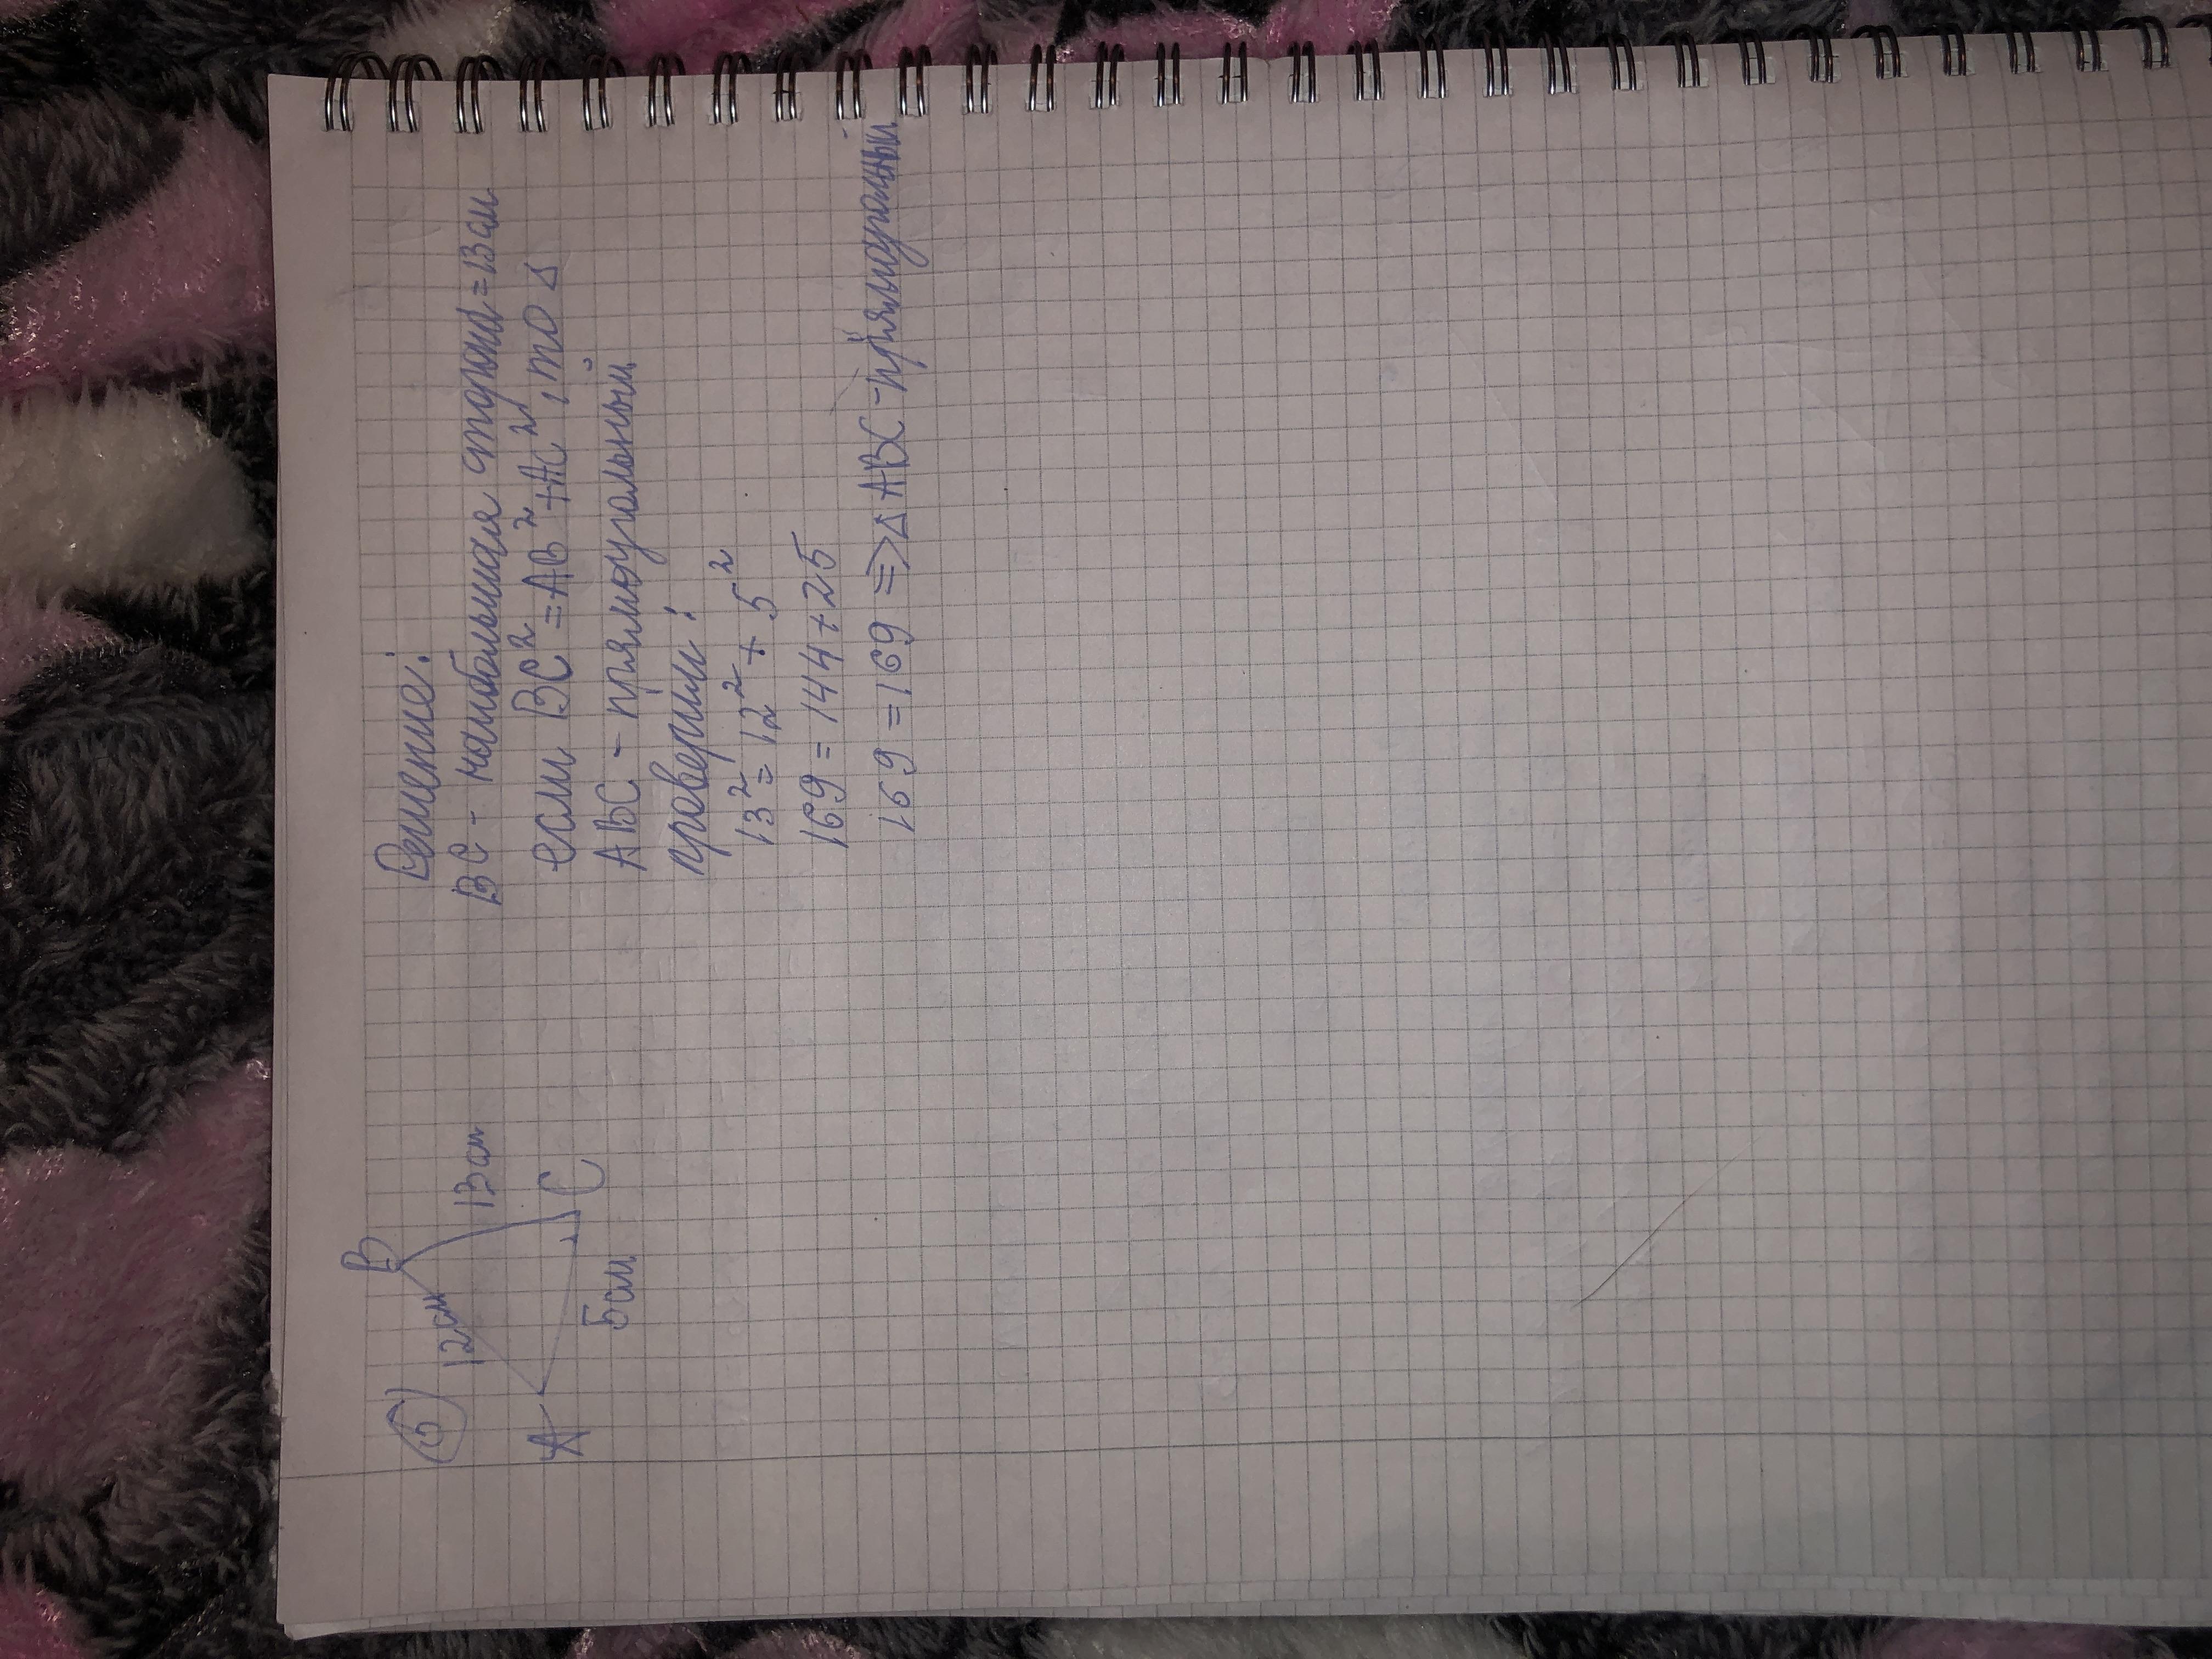 5)
B
12см
13см
A
C
5см
Решение:
BC - наибольшая сторона = 13 см
если BC² = AB² + AC², то Δ
ABC - прямоугольный
проверим:
13² = 12² + 5²
169 = 144 + 25
169 = 169 => Δ ABC - прямоугольный